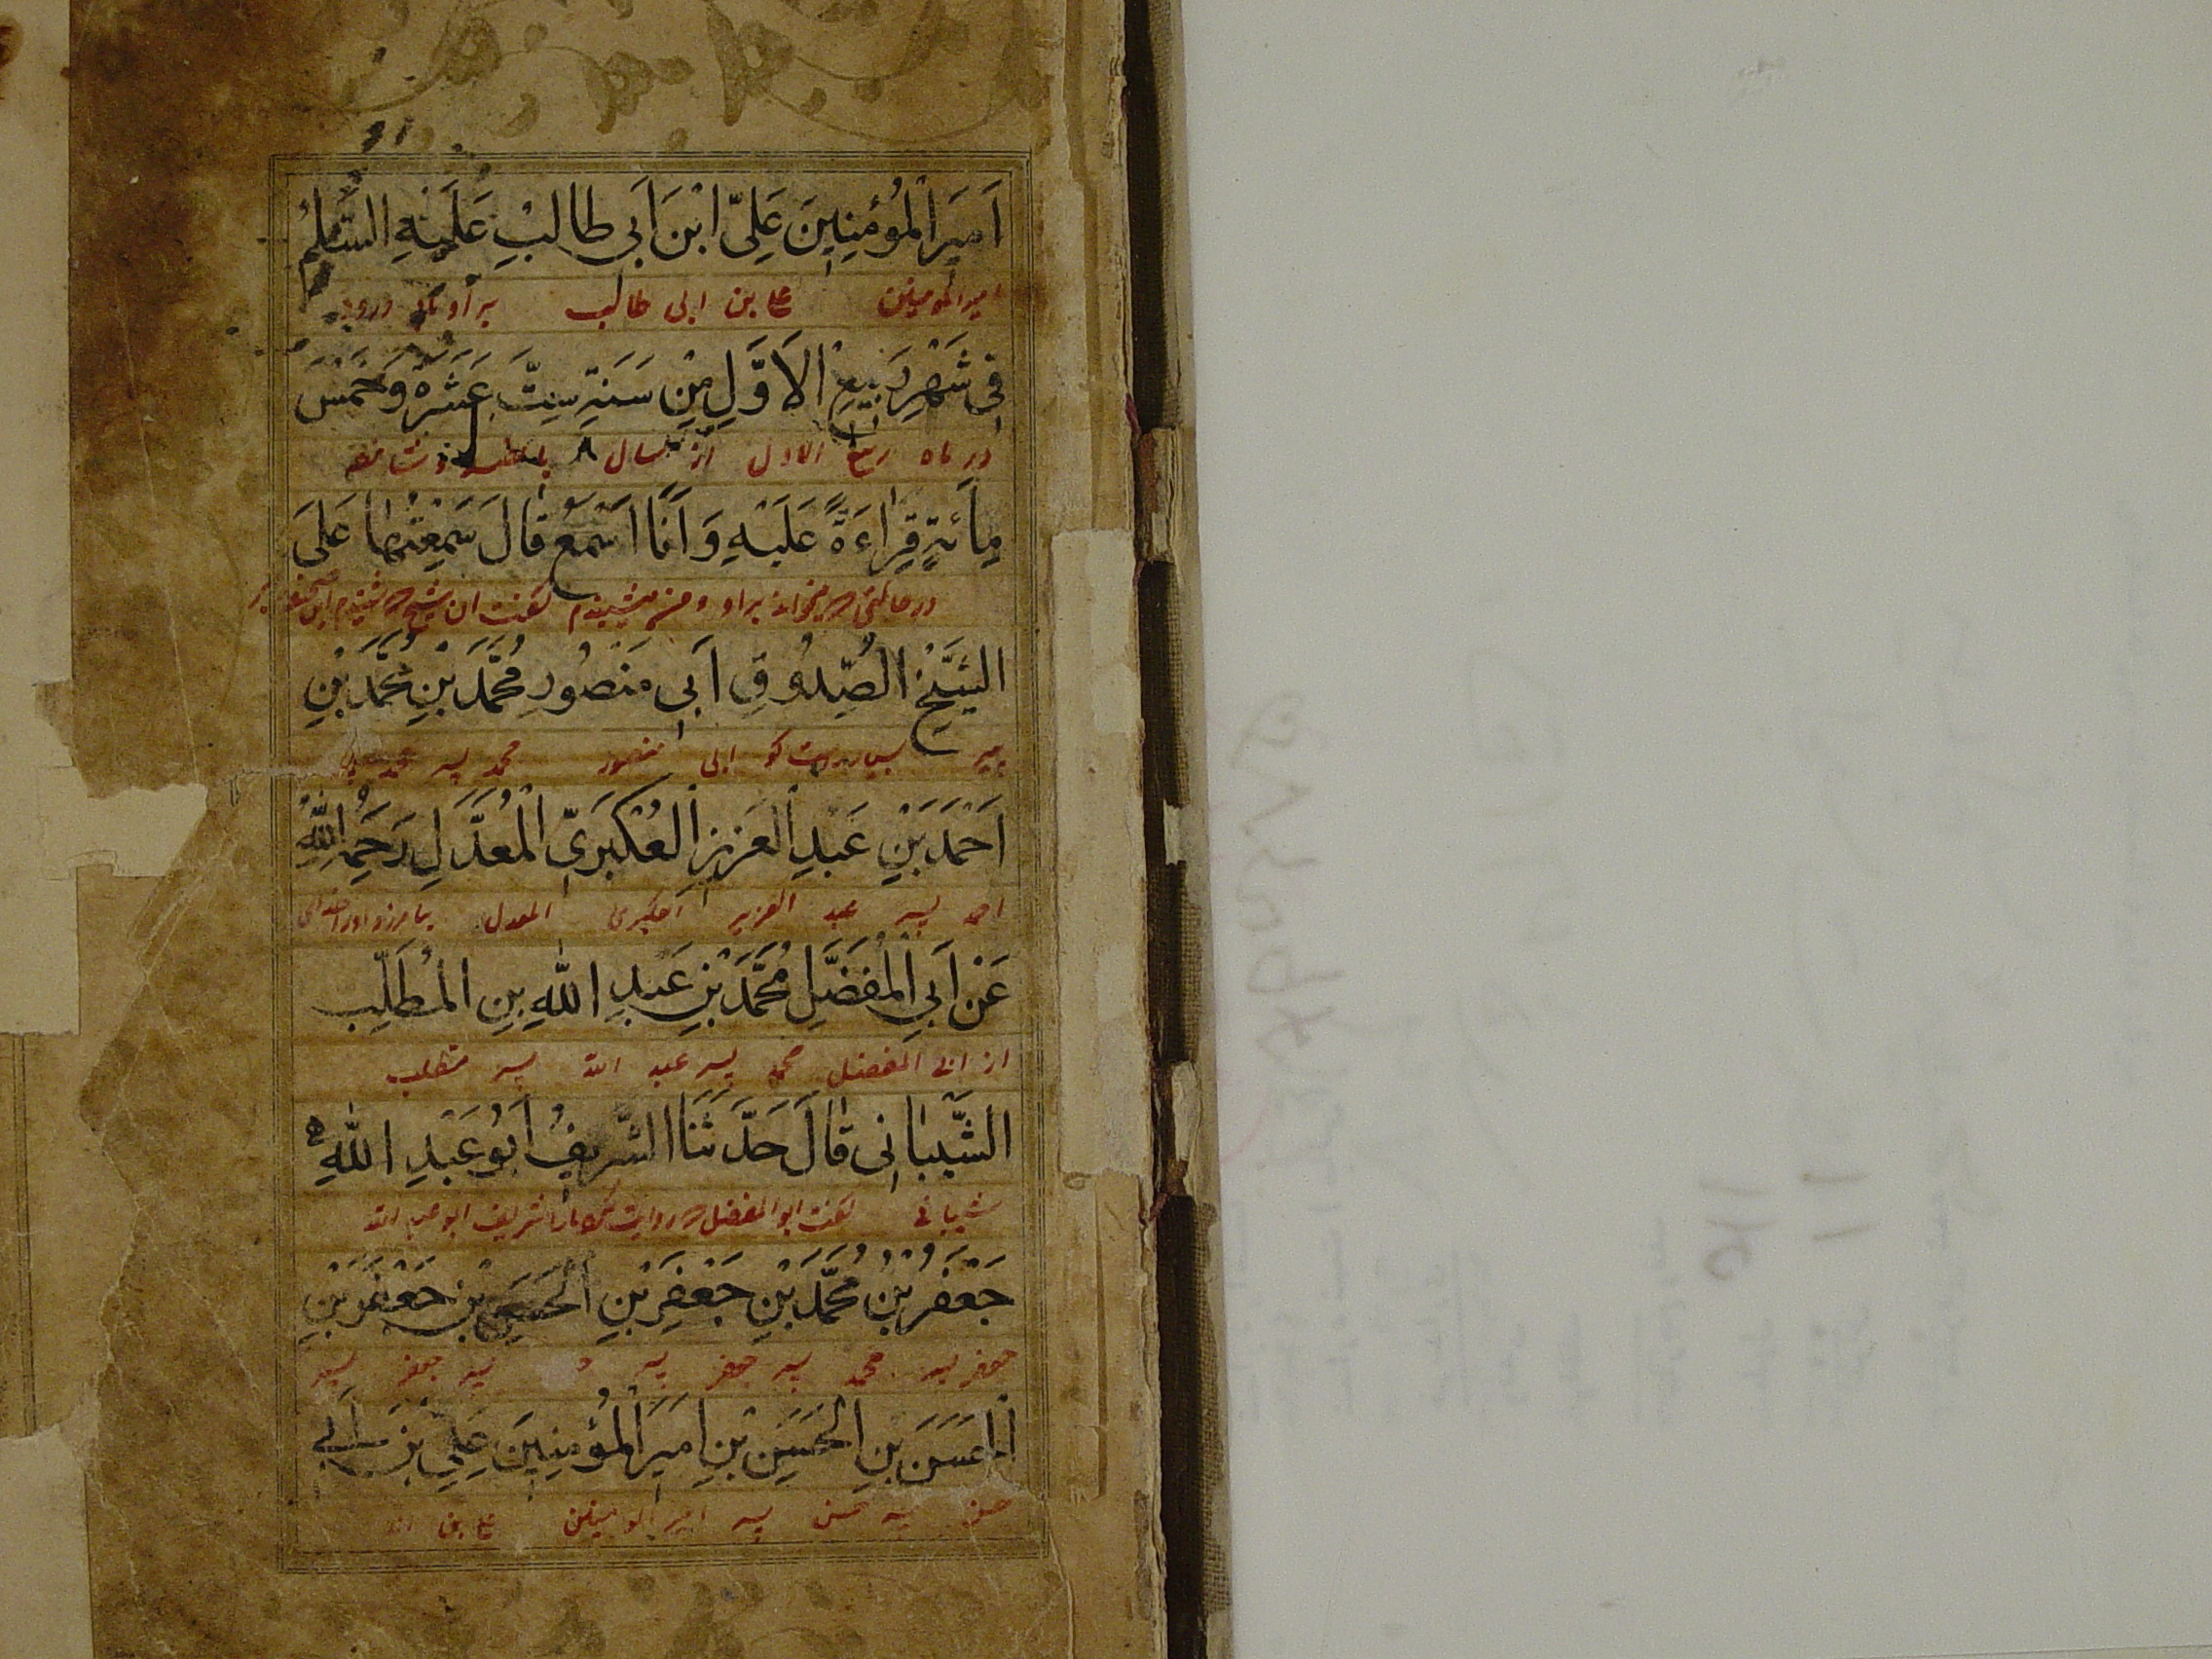 اَمیرَ الْمُؤْمِنِینَ عَلِیّ ابْنِ اَبی طالِبٍ عَلَیْهِ السَّلمُ
امیرالمومنین علی بن ابی طالب بر او درود
فی شَهْرِ رَبیعِ الْاَوَّلِ مِنْ سَنَةِ سِتَّ عَشَرَةَ وَخَمْسَ
در ماه ربیع الاول از سال
مِائَةٍ قِراءَةً عَلَیْهِ وَ اَنَا اَسْمَعُ قالَ سَمِعْتُها عَلَی
در حالتی که میخواند بر او و من میشنیدم گفت ان شیخ که شنیدم
الشَّیْخِ الصَّدُوقِ اَبی مَنْصُورِ مُحَمَّدِ بْنِ مُحَمَّدِ بْنِ
پیر بسیار راست کو ابی منصور محمد پسر محمد
اَحْمَدَ بْنِ عَبْدِ الْعَزیزِ الْعُکْبَرِیِّ الْمُعَدَّلِ رَحِمَهُ اللهُ
احمد پسر عبد العزیز العکبری المعدل بیامرزد او را خدای
عَنْ اَبِی الْمُفَضَّلِ مُحَمَّدِ بْنِ عَبْدِ اللهِ بْنِ الْمُطَّلِبِ
از ابی المفضل محمد پسر عبد الله پسر مطلب
الشَّیْبانِی قالَ حَدَّثَنَا الشَّریفُ اَبُو عَبْدِ اللهِ
شیبانی گفت ابو المفضل که روایت کرد ما را شریف ابو عبد الله
جَعْفَرُ بْنُ مُحَمَّدِ بْنِ جَعْفَرِ بْنِ الْحَسَنِ بْنِ جَعْفَرِ بْنِ
جعفر پسر محمد پسر جعفر پسر پسر جعفر پسر
الْحَسَنِ بْنِ الْحَسَنِ بْنِ اَمیرِ الْمُؤْمِنِینَ عَلِیِّ بْنِ اَبی
حسن پسر حسن پسر امیر المومنین علی بن